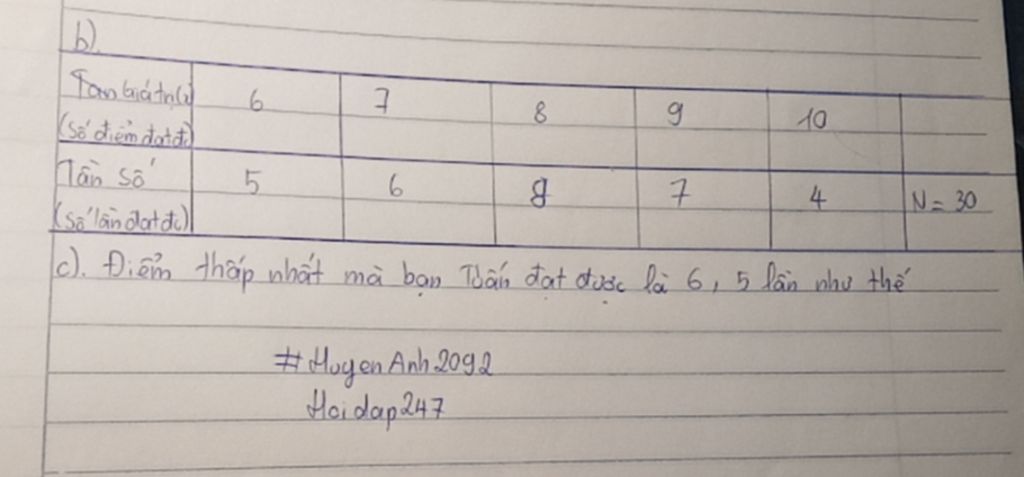 b).
Tên Giá trị(x) 6 7 8 9 10
(Số điểm đạt đc)
Tần số 5 6 8 7 4 N = 30
(Số lần đạt đc)
c). Điểm thấp nhất mà bạn Tuấn đạt được là 6, 5 lần như thế
#HuyenAnh2092
Hoidap247